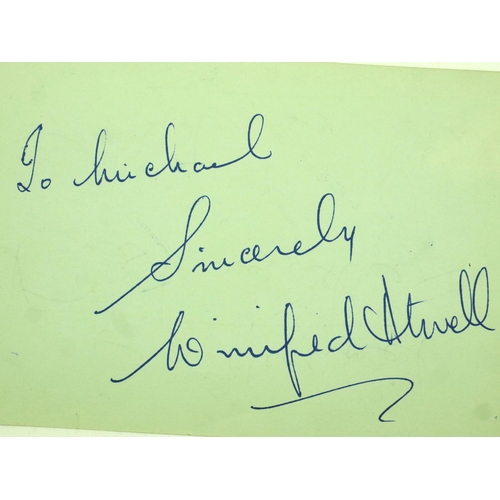 To Michael
Sincerely
Winifred Atwell